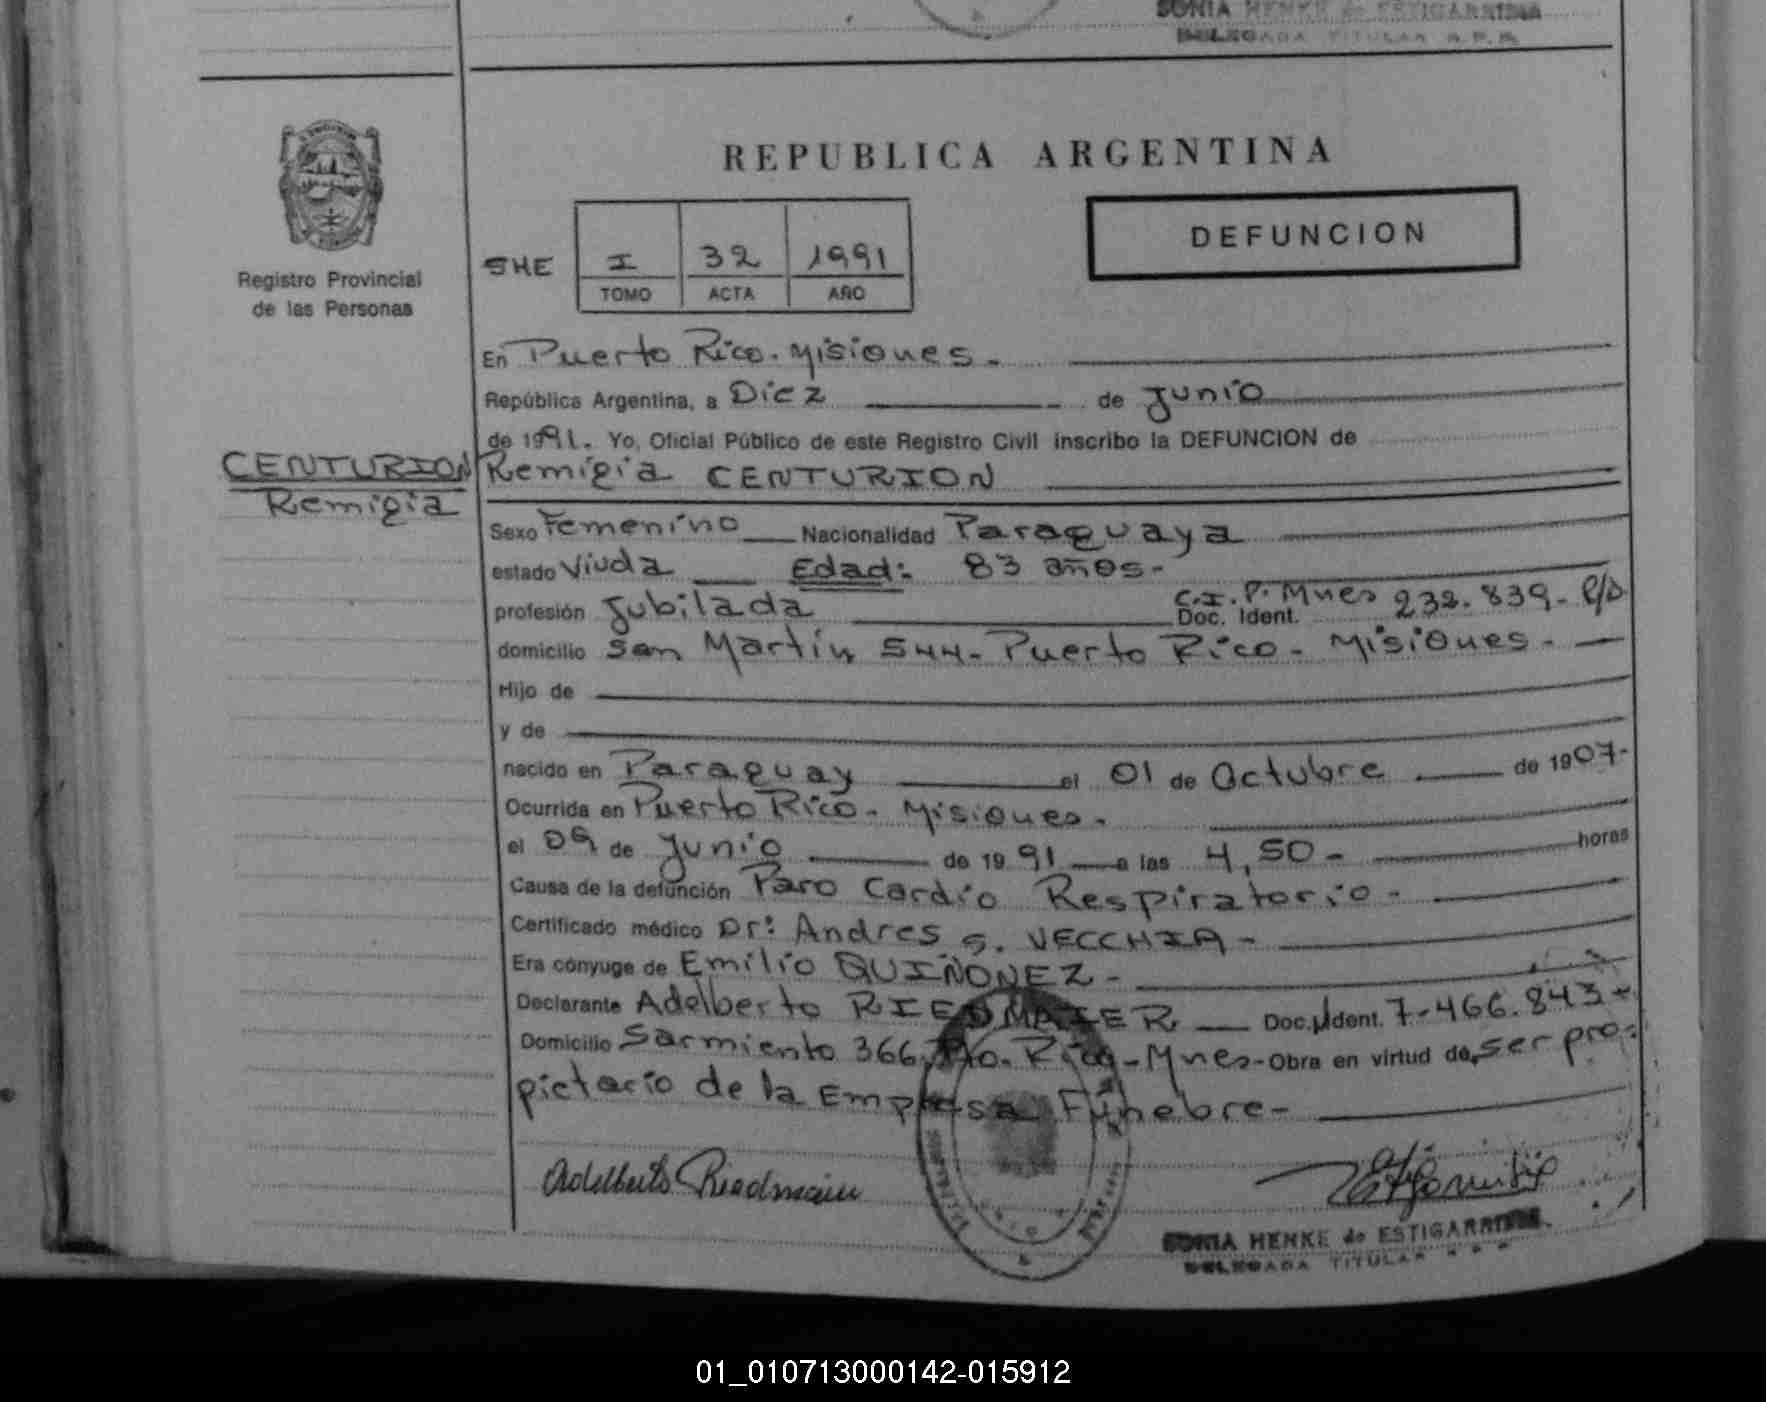 SONIA HENKE de ESTIGARRIBIA
DELEGADA TITULAR R.P.P.
REPUBLICA ARGENTINA
DEFUNCION
SHE I 32 1991
TOMO ACTA AÑO
Registro Provincial
de las Personas
En Puerto Rico. Misiones.
República Argentina, a Diez de Junio
de 1991. Yo, Oficial Público de este Registro Civil inscribo la DEFUNCION de
CENTURION
Remigia
Remigia CENTURION
Sexo Femenino Nacionalidad Paraguaya
estado Viuda Edad: 83 años-
profesión Jubilada Doc. Ident. C.I.P. Mnes 232.839-
domicilio San Martín 544- Puerto Rico- Misiones-
Hijo de
y de
nacido en Paraguay el 01 de Octubre de 1907-
Ocurrida en Puerto Rico- Misiones.
el 09 de Junio de 1991 a las 4,50- horas
Causa de la defunción Paro Cardio Respiratorio-
Certificado médico Dr: Andres S. VECCHIA-
Era cónyuge de Emilio QUIÑONEZ-
Declarante Adelberto RIEDMAIER Doc. Ident. 7-466.843-
Domicilio Sarmiento 366, Pto. Rico-Mnes- Obra en virtud de, ser pro-
pietario de la Empresa Fúnebre-
Adelberto Riedmaier
SONIA HENKE de ESTIGARRIBIA
DELEGADA TITULAR
01_010713000142-015912